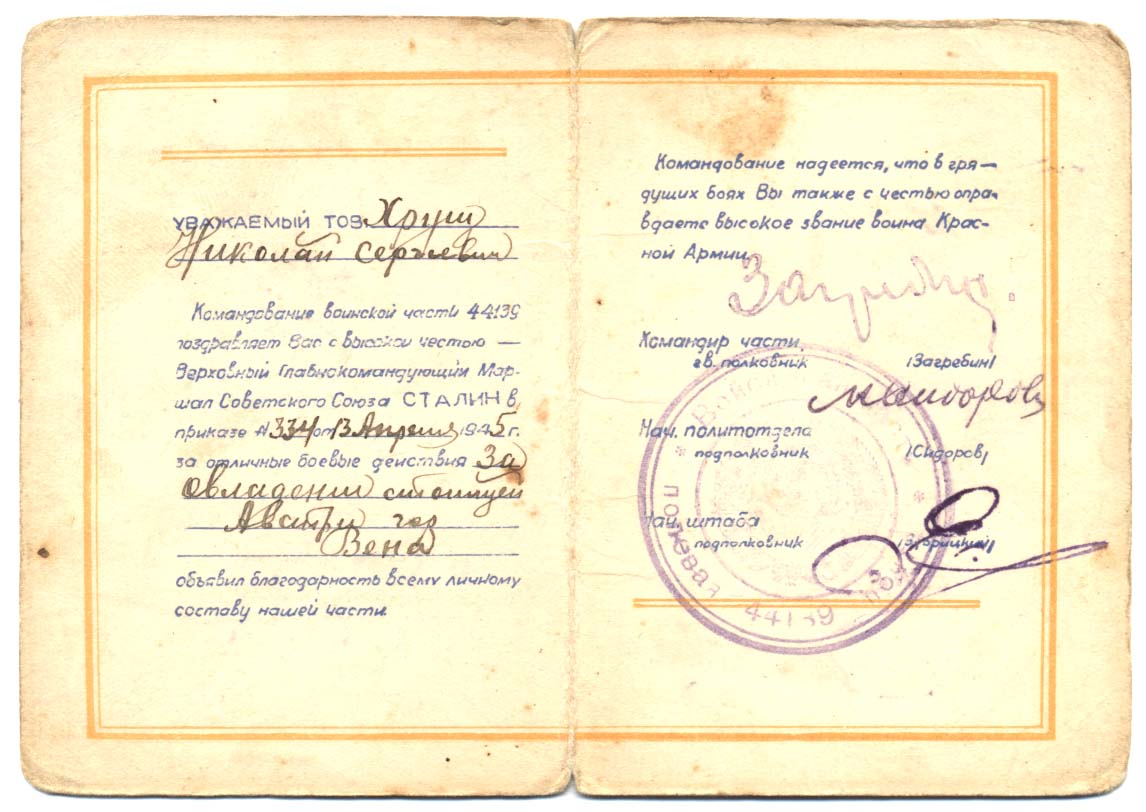 УВАЖАЕМЫЙ ТОВ. Хрущ
Николай Сергеевич
Командование воинской части 44139
поздравляет Вас с высокой честью —
Верховный Главнокомандующий Мар-
шал Советского Союза СТАЛИН в
приказе № 334 от 13 Апреля 1945 г.
за отличные боевые действия За
овладении столицей
Австри гор
Вена
объявил благодарность всему личному
составу нашей части.
Командование надеется, что в гря—
дущих боях Вы также с честью опра-
вдаете высокое звание воина Крас-
ной Армии.
Командир части,
гв. полковник /Загребин/
Нач. политотдела
подполковник /Сидоров/
Нач. штаба
подполковник
полевая 44139